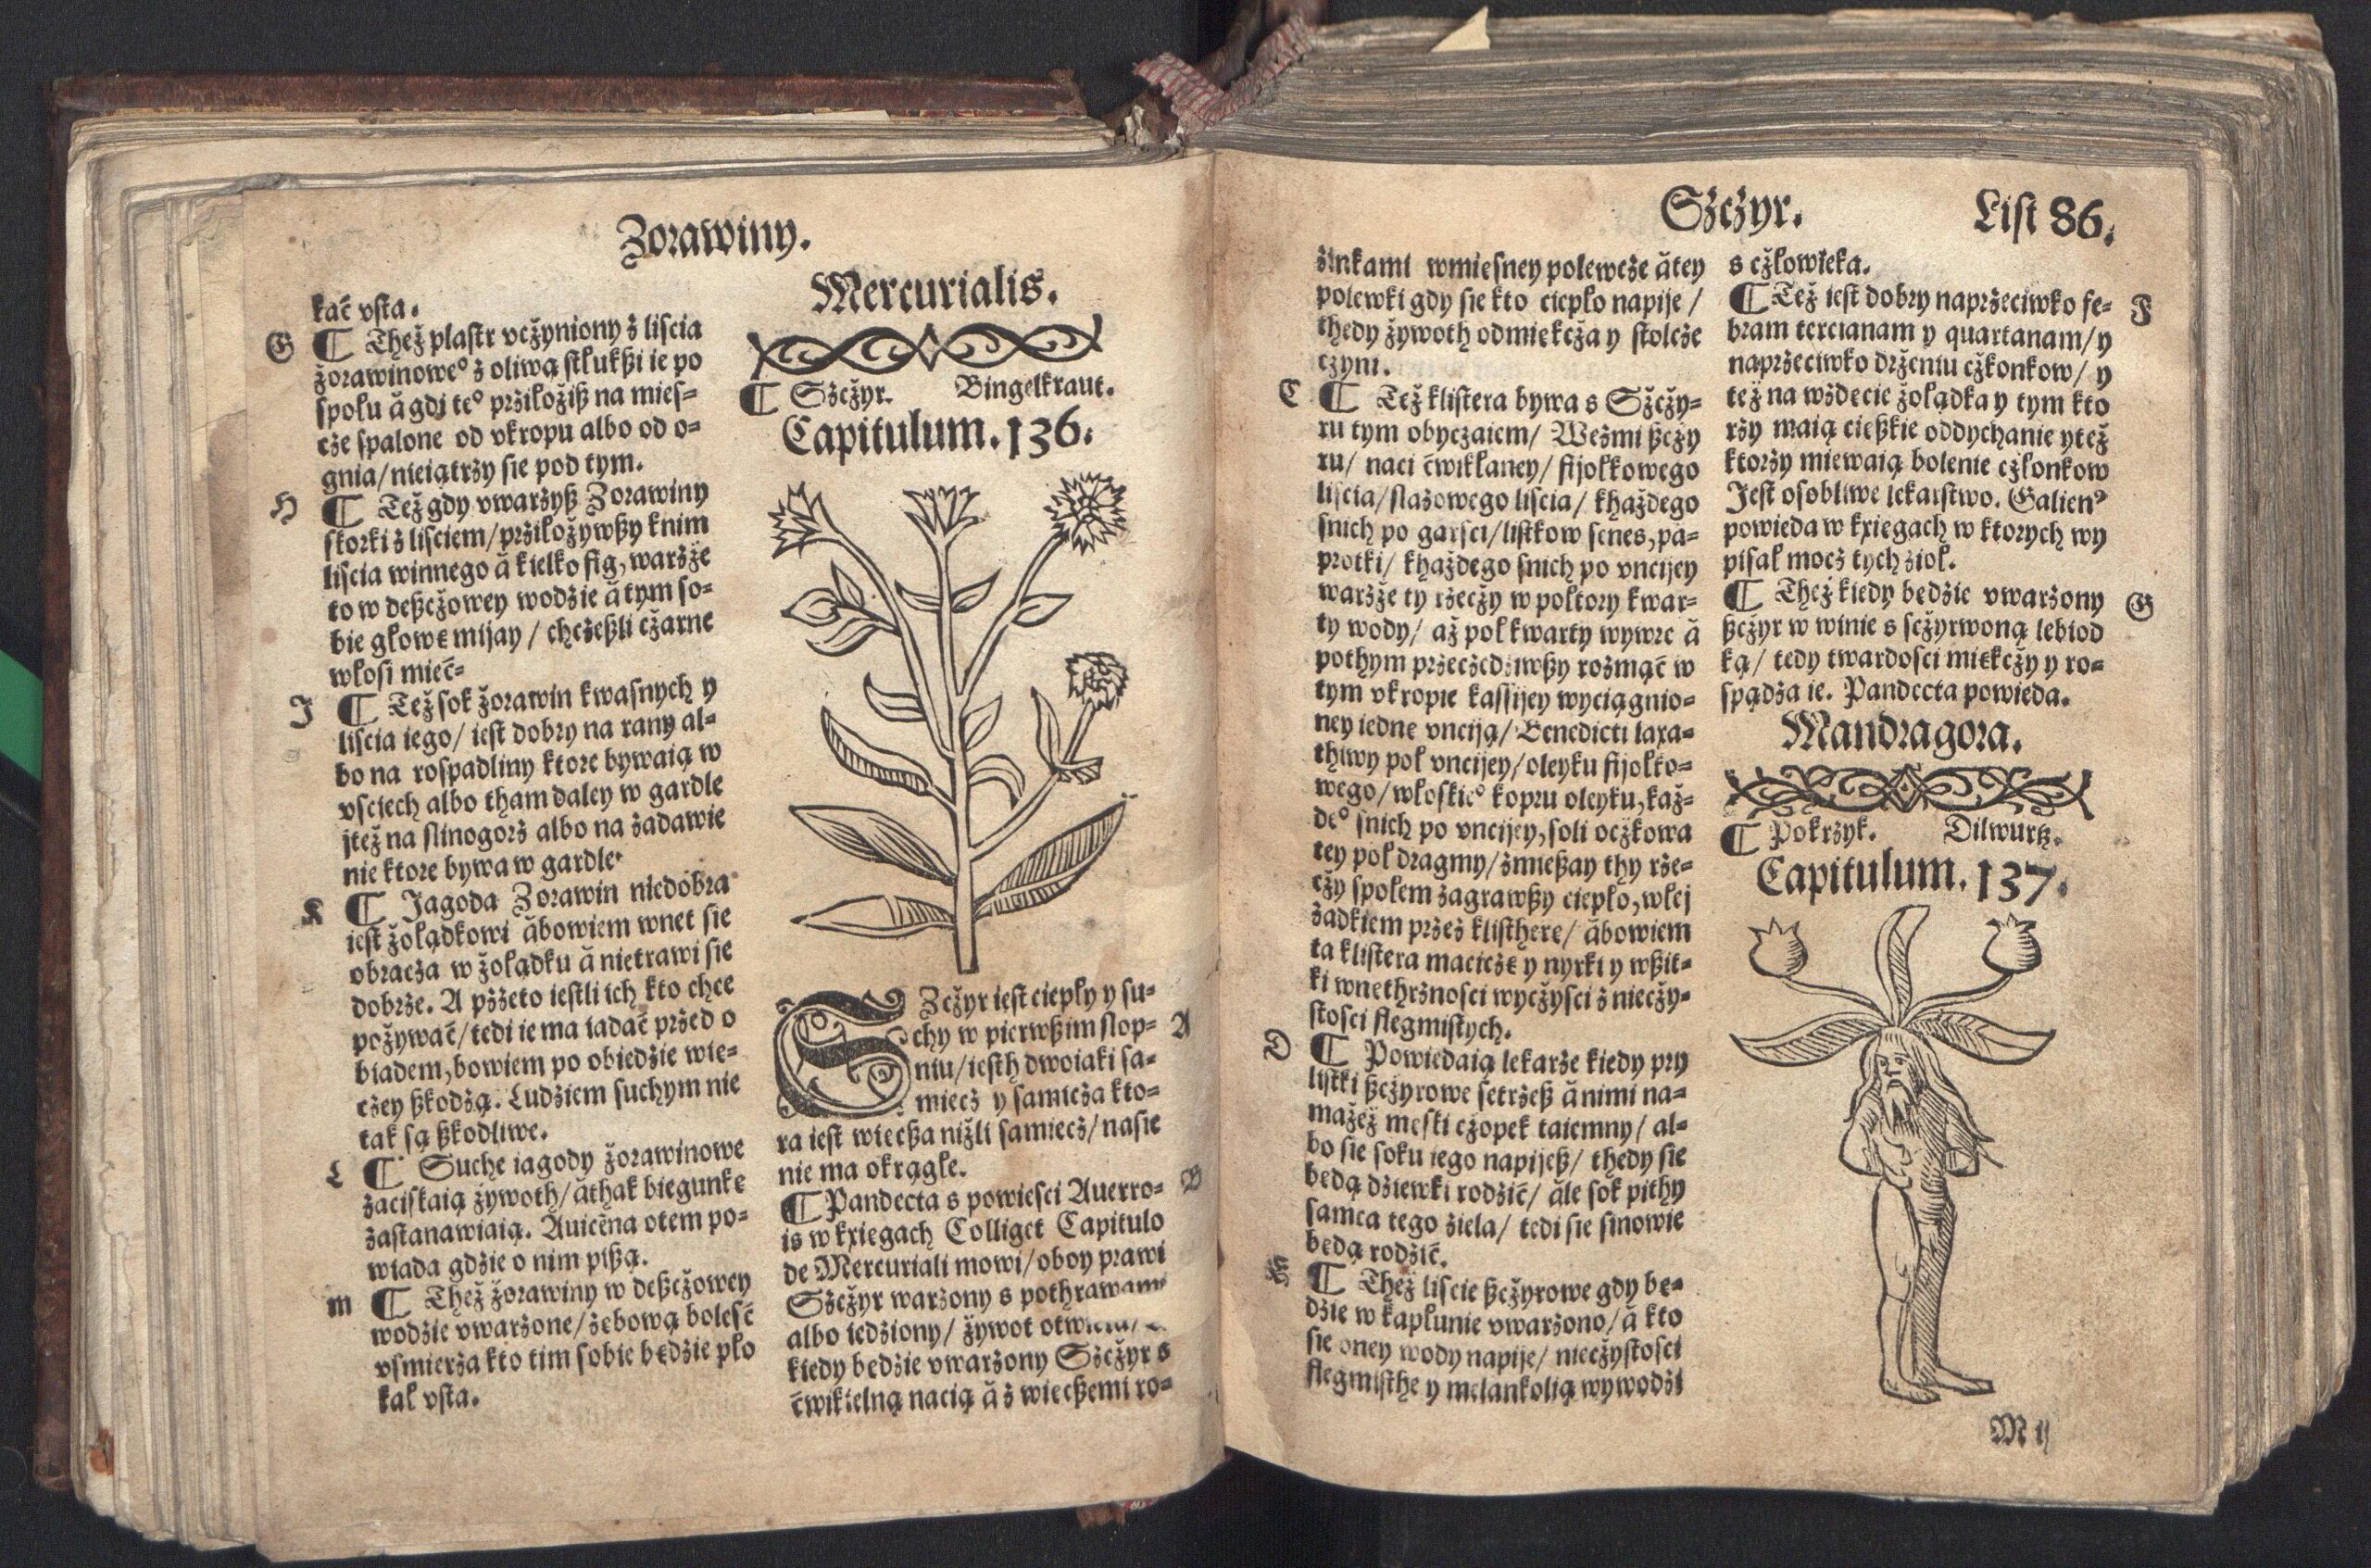 Zorawiny.
kać vsta.
G ¶ Theż plastr vcżyniony ż liscia
żorawinoweº ż oliwą stłukßi ie po
społu ā gdj teº prżiłożiß na mies-
cże spalone od vkropu albo od o-
gnia/ nieiątrży sie pod tym.
H ¶ Też gdy vwarżyß Zorawiny
skorki ż lisciem/ prżiłożywßy knim
liscia winnego ā kielko fig, warżże
to w deßcżowey wodżie ā tym so-
bie głowe mijay / chcżeßli cżarne
włosi mieć-
J ¶ Też sok żorawin kwasnych y
liscia iego/ iest dobry na rany al-
bo na rospadliny ktore bywaią w
vsciech albo tham daley w gardle
jteż na slinogorż albo na żadawie
nie ktore bywa w gardle.
K ¶ Jagoda Zorawin niedobra
iest żołądkowi ābowiem wnet sie
obracża w żołądku ā nietrawi sie
dobrże. A pżżeto iestli ich kto chce
pożywać/ tedi ie ma iadać przed o
biadem, bowiem po obiedżie wie-
cżey ßkodżą. Ludżiem suchym nie
tak są ßkodliwe.
L ¶ Suche iagody żorawinowe
żaciskaią żywoth/ āthak biegunke
żastanawiaią. Auicēna otem po-
wiada gdżie o nim pißą.
M ¶ Theż żorawiny w deßcżowey
wodżie vwarżone/ żebową boleść
vsmierża kto tim sobie będżie pło
kał vsta.
Mercurialis.
¶ Sżcżyr. Bingelkraut.
Capitulum. 136.
SZcżyr iest ciepły y su-
chy w pierwßim stop- A
niu/ iesth dwoiaki sa-
miecż y samicża kto-
ra iest wiecßa niżli samiecż/ nasie
nie ma okrągłe.
¶ Pandecta s powiesci Auerro- B
is w kxiegach Colliget Capitulo
de Mercuriali mowi/ oboy prawi
Sżcżyr warżony s pothrawami
albo iedżiony/ żywot
kiedy będżie vwarżony Sżcżyr s
ćwikielną nacią ā ż wiecßemi ro-
Sżcżyr. List 86.
żinkami wmiesney polewcże ā tey
polewki gdy sie kto ciepło napije /
thedy żywoth odmiekcża y stolcże
cżyni.
C ¶ Też klistera bywa s Sżcży-
ru tym obyczaiem/ Weżmi ßcży
ru/ naci ćwikłaney/ fijołkowego
liscia/ slażowego liscia/ khażdego
snich po garsci/ listkow senes, pa-
protki/ khażdego snich po vncijey
warżże ty rżecży w połtory kwar-
ty wody/ aż poł kwarty wywre ā
pothym prżecżedżiwßy rożmąć w
tym vkropie kassijey wyciągnio-
ney iedne vnciją/ Benedicti laxa-
thiwy poł vncijey/ oleyku fijołko-
wego/ włoskieº kopru oleyku, każ-
deº snich po vncijey, soli ocżkowa
tey poł dragmy/ żmießay thy rże-
cży społem żagrawßy ciepło, wlej
żadkiem prżeż klisthere/ ābowiem
ta klistera macicże y nyrki y wßit-
ki wnethrżnosci wycżysci ż niecży-
stosci flegmistych.
D ¶ Powiedaią lekarże kiedy pry
listki ßcżyrowe setrżeß ā nimi na-
mażeż meski cżopek taiemny/ al-
bo sie soku iego napijeß/ thedy sie
będą dżiewki rodżić/ āle sok pithy
samca tego żiela/ tedi sie sinowie
będą rodżić.
E ¶ Theż liscie ßcżyrowe gdy be-
dżie w kapłunie vwarżono/ ā kto
sie oney wody napije/ niecżystosci
flegmisthe y melankolią wywodżi
s cżłowieka.
¶ Też iest dobry naprżeciwko fe- F
bram tercianam y quartanam/ y
naprżeciwko drżeniu cżłonkow/ y
też na wżdecie żołądka y tym kto
rży maią cießkie oddychanie yteż
ktorży miewaią bolenie cżłonkow
Jest osobliwe lekarstwo. Galienꝰ
powieda w kxiegach w ktorych wy
pisał mocż tych żioł.
¶ Theż kiedy będżie vwarżony G
ßcżyr w winie s scżyrwoną lebiod
ką/ tedy twardosci miekcży y ro-
spądża ie. Pandecta powieda.
Mandragora.
¶ Pokrżyk. Dilwurtz.
Capitulum. 137.
M ij